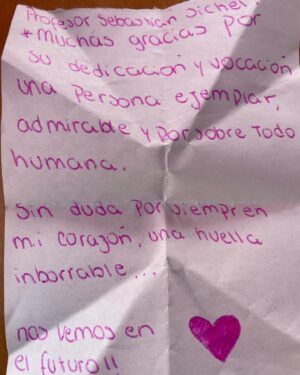 Profesor Sebastián Sichel
*muchas gracias por
su dedicación y vocación
una persona ejemplar,
admirable y por sobre todo
humana.
Sin duda por siempre en
mi corazón, una huella
inborrable...
nos vemos en
el futuro!!